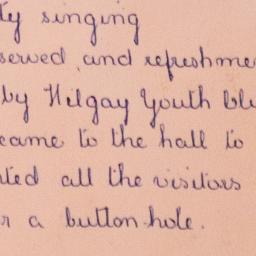 ty singing
served and refreshme
by Hilgay Youth Clu
came to the hall to
ted all the visitors
r a button-hole.